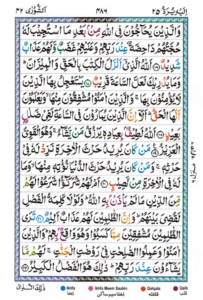 اِلَيْهِ يُرَدُّ ٢٥ ۴۸۶ اَلشُّوْرٰى ۴۲
وَالَّذِيْنَ يُحَآجُّوْنَ فِى اللّٰهِ مِنْۢ بَعْدِ مَا اسْتُجِيْبَ لَهٗ
حُجَّتُهُمْ دَاحِضَةٌ عِنْدَ رَبِّهِمْ وَعَلَيْهِمْ غَضَبٌ وَّلَهُمْ عَذَابٌ
شَدِيْدٌ اَللّٰهُ الَّذِيْٓ اَنْزَلَ الْكِتٰبَ بِالْحَقِّ وَالْمِيْزَانَ
وَمَا يُدْرِيْكَ لَعَلَّ السَّاعَةَ قَرِيْبٌ يَسْتَعْجِلُ بِهَا الَّذِيْنَ
لَا يُؤْمِنُوْنَ بِهَا وَالَّذِيْنَ اٰمَنُوْا مُشْفِقُوْنَ مِنْهَا وَيَعْلَمُوْنَ
اَنَّهَا الْحَقُّ اَلَآ اِنَّ الَّذِيْنَ يُمَارُوْنَ فِى السَّاعَةِ لَفِيْ
ضَلٰلٍۢ بَعِيْدٍ اَللّٰهُ لَطِيْفٌۢ بِعِبَادِهٖ يَرْزُقُ مَنْ يَّشَآءُ وَهُوَ الْقَوِىُّ
الْعَزِيْزُ مَنْ كَانَ يُرِيْدُ حَرْثَ الْاٰخِرَةِ نَزِدْ لَهٗ فِيْ
حَرْثِهٖ وَمَنْ كَانَ يُرِيْدُ حَرْثَ الدُّنْيَا نُؤْتِهٖ مِنْهَا وَمَا
لَهٗ فِى الْاٰخِرَةِ مِنْ نَّصِيْبٍ اَمْ لَهُمْ شُرَكٰٓؤُا شَرَعُوْا
لَهُمْ مِّنَ الدِّيْنِ مَا لَمْ يَاْذَنْۢ بِهِ اللّٰهُ وَلَوْلَا كَلِمَةُ الْفَصْلِ
لَقُضِىَ بَيْنَهُمْ وَاِنَّ الظّٰلِمِيْنَ لَهُمْ عَذَابٌ اَلِيْمٌ تَرَى
الظّٰلِمِيْنَ مُشْفِقِيْنَ مِمَّا كَسَبُوْا وَهُوَ وَاقِعٌۢ بِهِمْ وَالَّذِيْنَ
اٰمَنُوْا وَعَمِلُوا الصّٰلِحٰتِ فِيْ رَوْضٰتِ الْجَنّٰتِ لَهُمْ مَّا
يَشَآءُوْنَ عِنْدَ رَبِّهِمْ ذٰلِكَ هُوَ الْفَضْلُ الْكَبِيْرُ